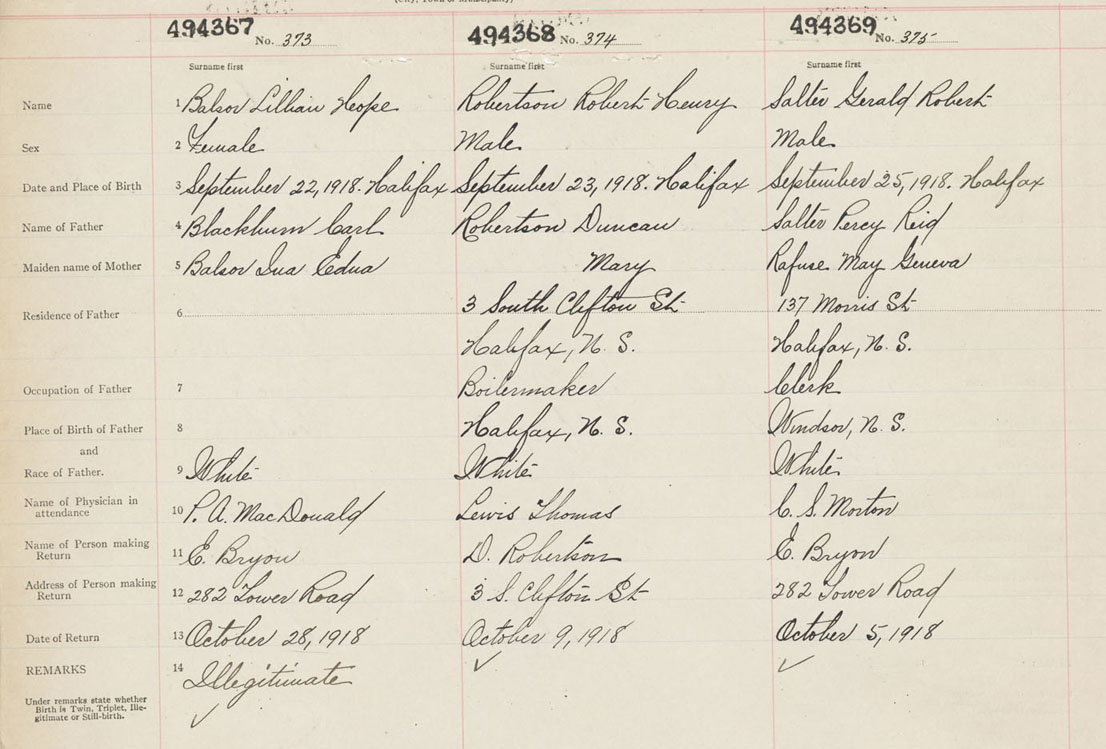 494367 No. 373 494368 No. 374 494369 No. 375
Surname first Surname first Surname first
Name 1 Balsor Lillian Hope Robertson Robert Henry Salter Gerald Robert
Sex 2 Female Male Male
Date and Place of Birth 3 September 22, 1918. Halifax September 23, 1918. Halifax September 25, 1918. Halifax
Name of Father 4 Blackburn Carl Robertson Duncan Salter Percy Reid
Maiden name of Mother 5 Balsor Ina Edna Mary Rafuse May Geneva
Residence of Father 6 3 South Clifton St 137 Morris St
Halifax, N. S. Halifax, N. S.
Occupation of Father 7 Boilermaker Clerk
Place of Birth of Father 8 Halifax, N. S. Windsor, N. S.
and
Race of Father. 9 White White White
Name of Physician in
attendance 10 P. A. MacDonald Lewis Thomas C. S. Morton
Name of Person making
Return 11 E. Bryon D. Robertson E. Bryon
Address of Person making
Return 12 282 Tower Road 3 S. Clifton St 282 Tower Road
Date of Return 13 October 28, 1918 October 9, 1918 October 5, 1918
REMARKS 14 Illegitimate
Under remarks state whether
Birth is Twin, Triplet, Ille-
gitimate or Still-birth.